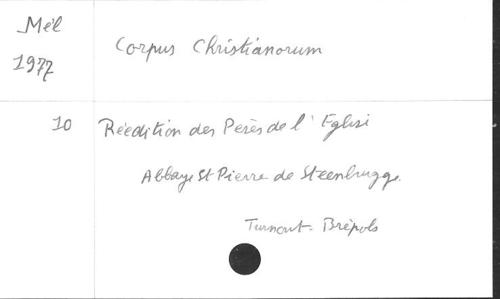 Mél
1977
Corpus Christianorum
10
Réedition des Pères de l'Eglise
Abbaye St Pierre de Steenbrugge.
Turnout - Brépols